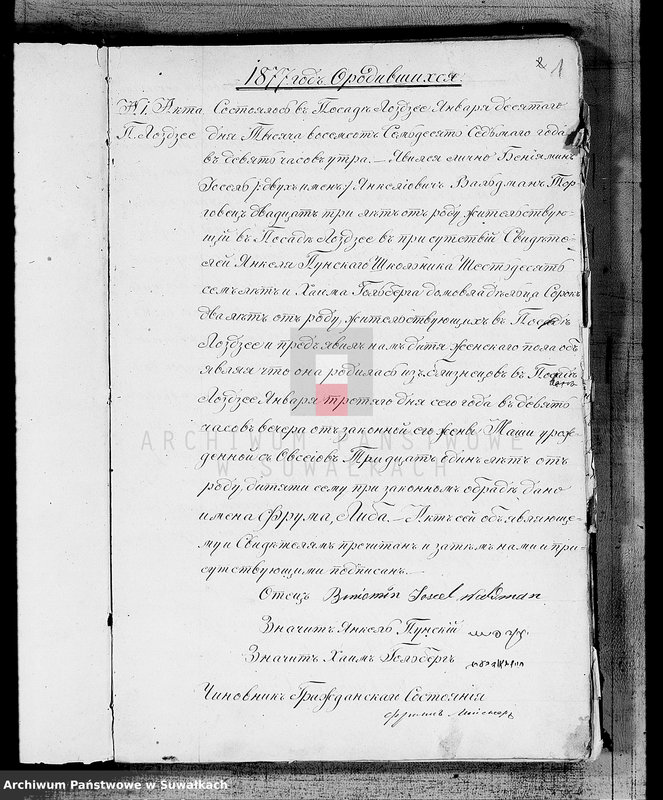 2 1
1877 годъ. О родившихся.
№ 1. Акта. Состоялось въ Посадѣ Лоздзее Января десятаго
П. Лоздзее дня Тысяча восемсотъ Семьдесятъ Седьмаго года
въ девять часовъ утра. — Явился лично Беніяминъ
Іосель /: двухъ именъ / Янкеліовичъ Вальдманъ Тор
говецъ двадцать три лѣтъ отъ роду жительствую-
щій въ Посадѣ Лоздзее въ присутствіи Свидѣте-
лей Янкеля Пунскаго Школьника Шестьдесятъ
семь лѣтъ и Хаима Гольберга домовладѣльца Сорокъ
два лѣтъ отъ роду, жительствующихъ въ Посадѣ
Лоздзее и предъявилъ намъ дитя женскаго пола объ
являя что она родилась изъ близнецовъ въ Посадѣ
Лоздзее Января третяго дня сего года въ девять
часовъ вечера отъ законной его жены Таши урож-
денной съ Овсеіовъ Тридцать Одинъ лѣтъ отъ
роду, дитяти сему при законномъ обрядѣ дано
имена Фрума, Либа. — Актъ сей объявляюще-
му и Свидѣтелямъ прочитанъ и затѣмъ нами и при-
сутствующими подписанъ. —
Отецъ Beniomin Josel Waldman
Значитъ Янкель Пунскій
Значитъ Хаимъ Гольбергъ
Чиновникъ Гражданскаго Состоянія
ARCHIWUM PAŃSTWOWE
W SUWAŁKACH
Archiwum Państwowe w Suwałkach